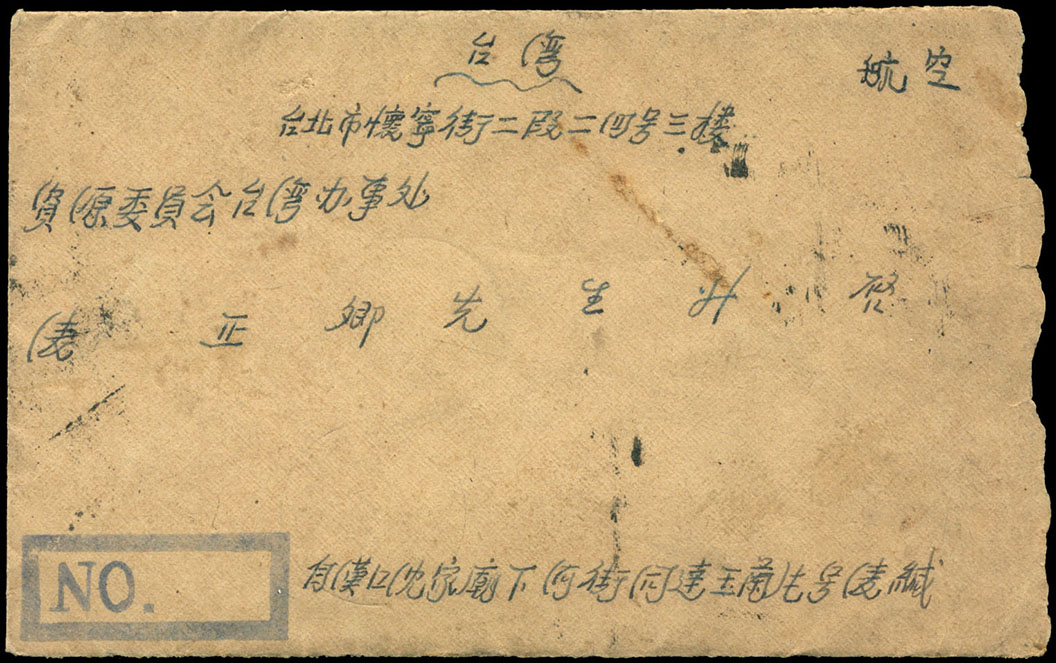 台湾
航空
台北市懷寧街二段二四号三樓
資源委員会台湾办事处
正卿先生 启
NO.
自漢口沈家廟下河街同達玉